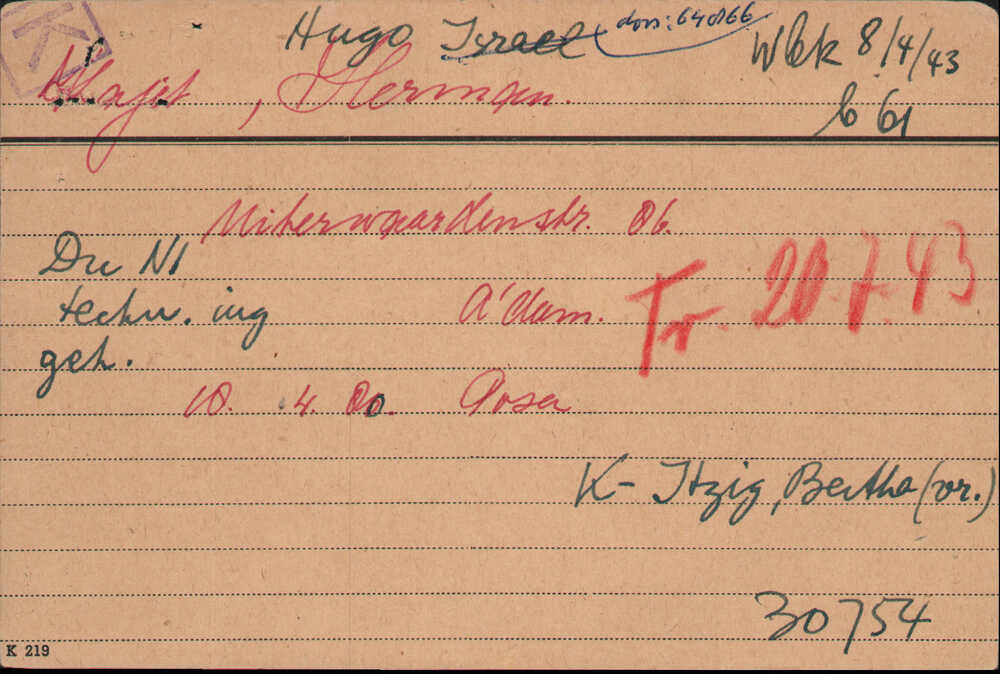 K
Hugo Israel doss: 640866 Wbk 8/4/43
, Herman. b 61
Uiterwaardenstr. 86.
Du NI
techn. ing A'dam. Tr. 20.7.43
geh.
18. 4. 80. Posen
K- Itzig, Bertha (vr.)
30754
K 219